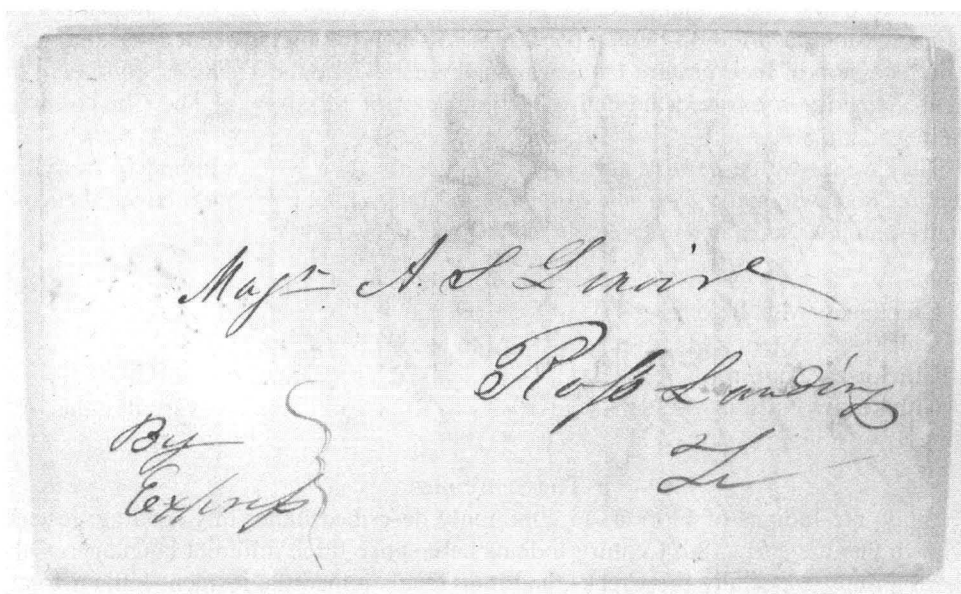 Majr A. S Lenoire
Ross Landing
Te
By
Express